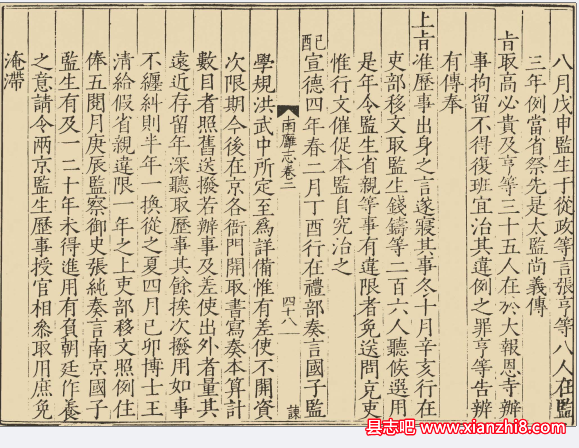 八月戊申監生于從政等言張亨等八人在監
三年例當省祭先是太監尚義傳
旨取高必貴及亨等三十五人在於大報恩寺辦
事拘留不得復班宜治其違例之罪亨等告辨
有傳奉
上旨准歷事出身之言遂寢其事冬十月辛亥行在
吏部移文取監生錢鑄等二百六人聽候選用
是年令監生省親等事有違限者免送問充吏
惟行文催促本監自究治之
宣德四年春二月丁酉行在禮部奏言國子監
南雝志卷二
四十八
諫
學規洪武中所定至為詳備惟有差使不開資
次限期今後在京各衙門開取書寫奏本算計
數目者照舊送撥若辦事及差使出外者量其
遠近存留年深聽取歷事其餘挨次撥用如事
不纏糾則半年一換從之夏四月己卯博士王
清給假省親違限一年之上吏部移文照例住
俸五閱月庚辰監察御史張純奏言南京國子
監生有及一二十年未得進用有負朝廷作養
之意請令兩京監生歷事授官相叅取用庶免
淹滯
县志吧 www.xianzhi8.com